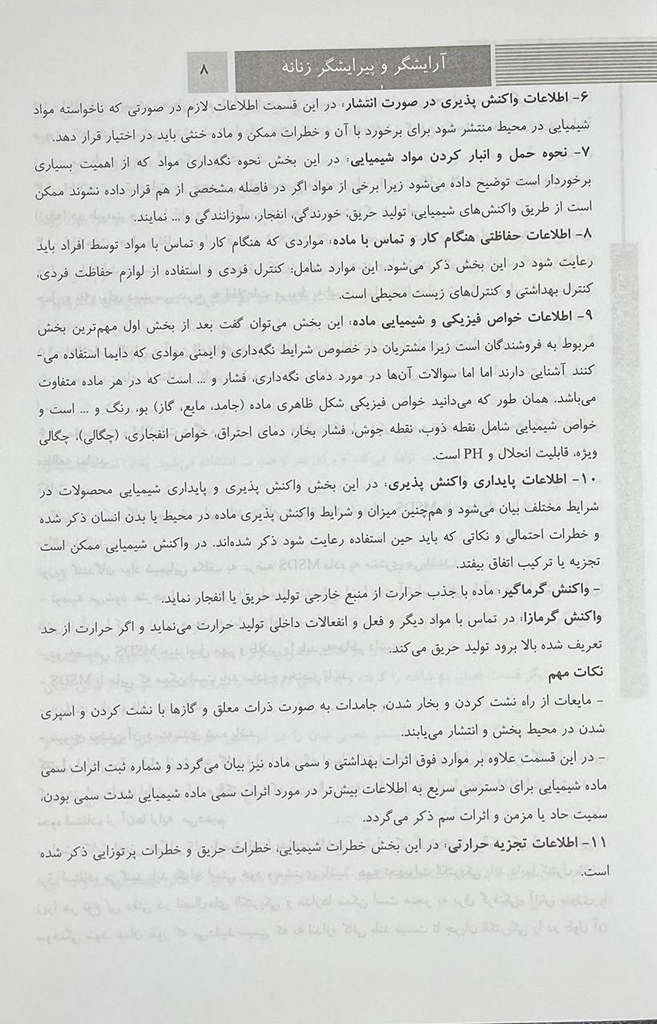 آرایشگر و پیرایشگر زنانه
۸
۶- اطلاعات واکنش پذیری در صورت انتشار: در این قسمت اطلاعات لازم در صورتی که ناخواسته مواد
شیمیایی در محیط منتشر شود برای برخورد با آن و خطرات ممکن و ماده خنثی باید در اختیار قرار دهد.
۷- نحوه حمل و انبار کردن مواد شیمیایی: در این بخش نحوه نگه‌داری مواد که از اهمیت بسیاری
برخوردار است توضیح داده می‌شود زیرا برخی از مواد اگر در فاصله مشخصی از هم قرار داده نشوند ممکن
است از طریق واکنش‌های شیمیایی، تولید حریق، خورندگی، انفجار، سوزانندگی و ... نمایند.
۸- اطلاعات حفاظتی هنگام کار و تماس با ماده: مواردی که هنگام کار و تماس با مواد توسط افراد باید
رعایت شود در این بخش ذکر می‌شود. این موارد شامل: کنترل فردی و استفاده از لوازم حفاظت فردی،
کنترل بهداشتی و کنترل‌های زیست محیطی است.
۹- اطلاعات خواص فیزیکی و شیمیایی ماده: این بخش می‌توان گفت بعد از بخش اول مهم‌ترین بخش
مربوط به فروشندگان است زیرا مشتریان در خصوص شرایط نگه‌داری و ایمنی موادی که دایما استفاده می-
کنند آشنایی دارند اما اما سوالات آن‌ها در مورد دمای نگه‌داری، فشار و ... است که در هر ماده متفاوت
می‌باشد. همان طور که می‌دانید خواص فیزیکی شکل ظاهری ماده (جامد، مایع، گاز) بو، رنگ و ... است و
خواص شیمیایی شامل نقطه ذوب، نقطه جوش، فشار بخار، دمای احتراق، خواص انفجاری، (چگالی)، چگالی
ویژه، قابلیت انحلال و PH است.
۱۰- اطلاعات پایداری واکنش پذیری: در این بخش واکنش پذیری و پایداری شیمیایی محصولات در
شرایط مختلف بیان می‌شود و هم‌چنین میزان و شرایط واکنش پذیری ماده در محیط یا بدن انسان ذکر شده
و خطرات احتمالی و نکاتی که باید حین استفاده رعایت شود ذکر شده‌اند. در واکنش شیمیایی ممکن است
تجزیه یا ترکیب اتفاق بیفتد.
- واکنش گرماگیر: ماده با جذب حرارت از منبع خارجی تولید حریق یا انفجار نماید.
واکنش گرمازا: در تماس با مواد دیگر و فعل و انفعالات داخلی تولید حرارت می‌نماید و اگر حرارت از حد
تعریف شده بالا برود تولید حریق می‌کند.
نکات مهم
- مایعات از راه نشت کردن و بخار شدن، جامدات به صورت ذرات معلق و گازها با نشت کردن و اسپری
شدن در محیط پخش و انتشار می‌یابند.
- در این قسمت علاوه بر موارد فوق اثرات بهداشتی و سمی ماده نیز بیان می‌گردد و شماره ثبت اثرات سمی
ماده شیمیایی برای دسترسی سریع به اطلاعات بیش‌تر در مورد اثرات سمی ماده شیمیایی شدت سمی بودن،
سمیت حاد یا مزمن و اثرات سم ذکر می‌گردد.
۱۱- اطلاعات تجزیه حرارتی: در این بخش خطرات شیمیایی، خطرات حریق و خطرات پرتوزایی ذکر شده
است.